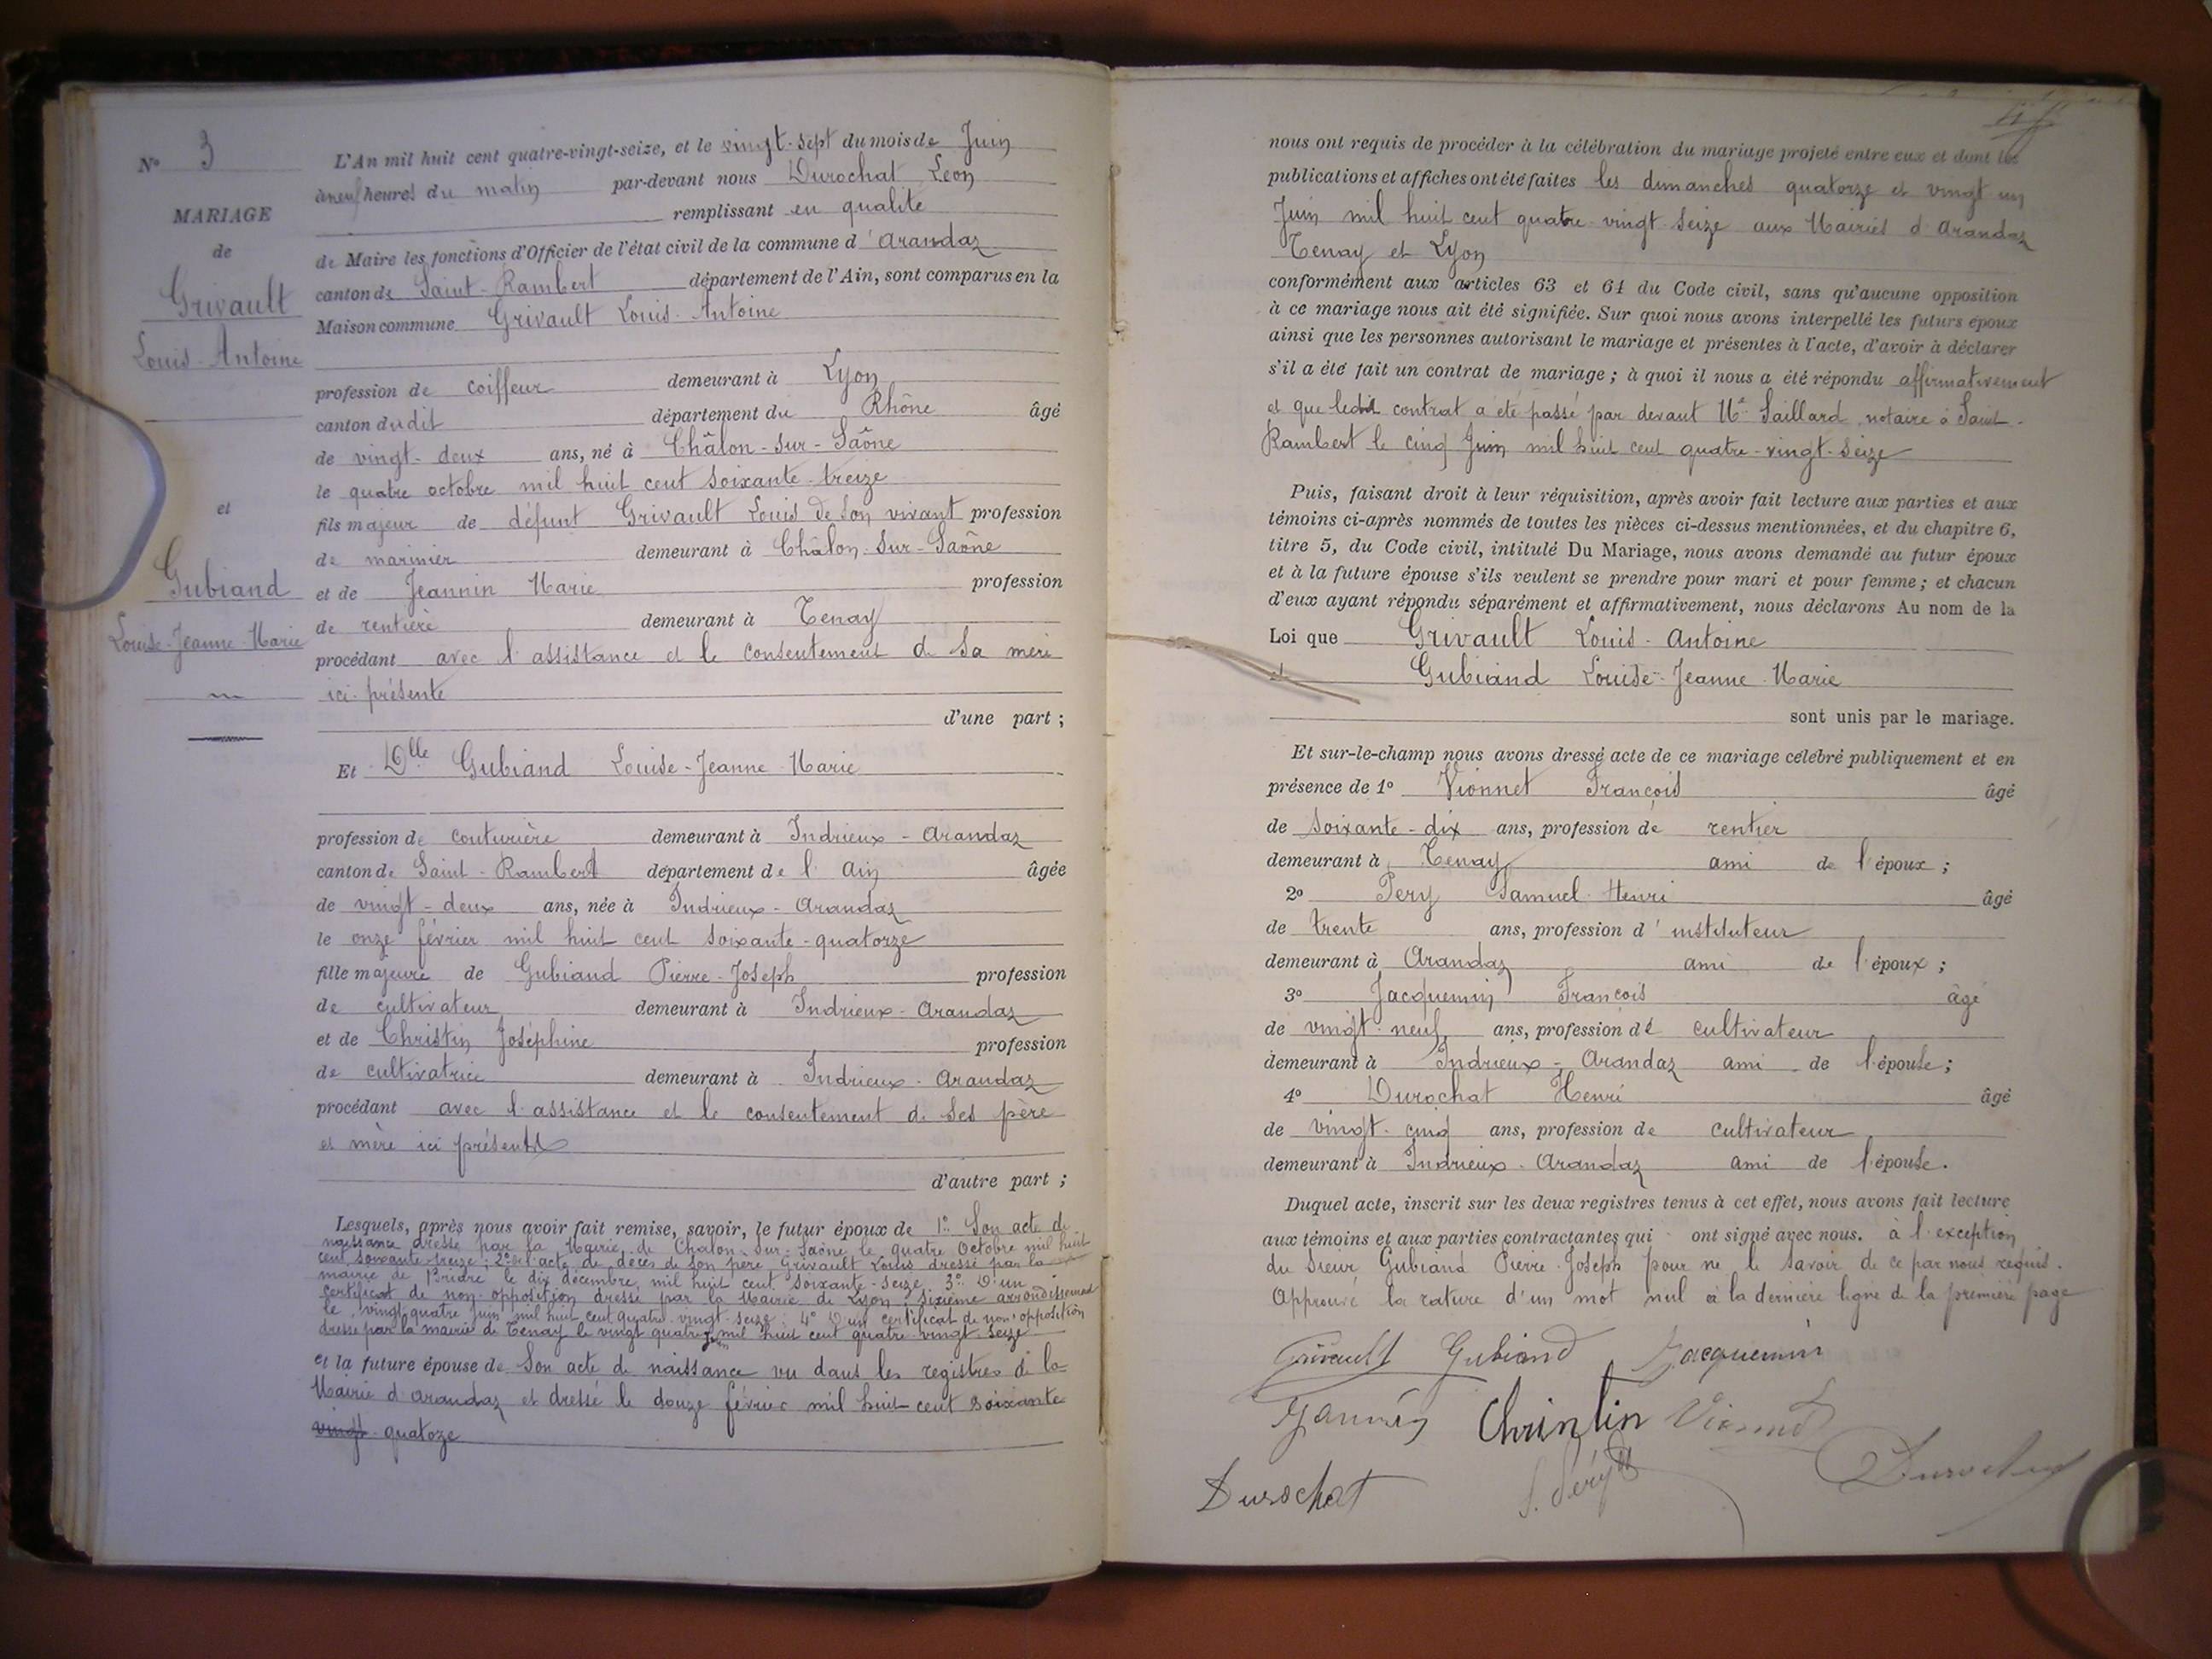 N° 3
MARIAGE
de
Grivault
Louis-Antoine
et
Gubiand
Louise-Jeanne-Marie
L'An mil huit cent quatre-vingt-seize, et le vingt-sept du mois de Juin
à neuf heures du matin par-devant nous Durochat Léon
remplissant en qualité
de Maire les fonctions d'Officier de l'état civil de la commune d'Arandaz
canton de Saint-Rambert département de l'Ain, sont comparus en la
Maison commune Grivault Louis-Antoine
profession de coiffeur demeurant à Lyon
canton dudit département du Rhône âgé
de vingt-deux ans, né à Châlon-sur-Saône
le quatre octobre mil huit cent soixante-treize
fils majeur de défunt Grivault Louis de son vivant profession
de marinier demeurant à Châlon-sur-Saône
et de Jeannin Marie profession
de rentière demeurant à Tenay
procédant avec l'assistance et le consentement de sa mère
ici présente
d'une part ;
Et Dlle Gubiand Louise-Jeanne-Marie
profession de couturière demeurant à Indrieux-Arandaz
canton de Saint-Rambert département de l'Ain âgée
de vingt-deux ans, née à Indrieux-Arandaz
le onze février mil huit cent soixante-quatorze
fille majeure de Gubiand Pierre-Joseph profession
de cultivateur demeurant à Indrieux-Arandaz
et de Christin Joséphine profession
de cultivatrice demeurant à Indrieux-Arandaz
procédant avec l'assistance et le consentement de ses père
et mère ici présents
d'autre part ;
Lesquels, après nous avoir fait remise, savoir, le futur époux de 1° Son acte de
naissance dressé par la Mairie de Chalon-sur-Saône le quatre Octobre mil huit
cent soixante-treize ; 2° de l'acte de décès de son père Grivault Louis dressé par la
mairie de le dix décembre mil huit cent soixante-seize 3° D'un
certificat de non-opposition dressé par la Mairie de Lyon, sixième arrondissement
le vingt-quatre Juin mil huit cent quatre-vingt-seize 4° D'un certificat de non-opposition
dressé par la mairie de Tenay le vingt quatre Juin mil huit cent quatre vingt seize
et la future épouse de Son acte de naissance vu dans les registres de la
Mairie d'Arandaz et dressé le douze février mil huit cent soixante
vingt quatoze
nous ont requis de procéder à la célébration du mariage projeté entre eux et dont les
publications et affiches ont été faites les dimanches quatorze et vingt un
Juin mil huit cent quatre-vingt-seize aux Mairies d'Arandaz
Tenay et Lyon
conformément aux articles 63 et 64 du Code civil, sans qu'aucune opposition
à ce mariage nous ait été signifiée. Sur quoi nous avons interpellé les futurs époux
ainsi que les personnes autorisant le mariage et présentes à l'acte, d'avoir à déclarer
s'il a été fait un contrat de mariage ; à quoi il nous a été répondu affirmativement
et que ledit contrat a été passé par devant Me Saillard notaire à Saint-
Rambert le cinq Juin mil huit cent quatre-vingt-seize
Puis, faisant droit à leur réquisition, après avoir fait lecture aux parties et aux
témoins ci-après nommés de toutes les pièces ci-dessus mentionnées, et du chapitre 6,
titre 5, du Code civil, intitulé Du Mariage, nous avons demandé au futur époux
et à la future épouse s'ils veulent se prendre pour mari et pour femme ; et chacun
d'eux ayant répondu séparément et affirmativement, nous déclarons Au nom de la
Loi que Grivault Louis-Antoine
et Gubiand Louise-Jeanne-Marie
sont unis par le mariage.
Et sur-le-champ nous avons dressé acte de ce mariage célébré publiquement et en
présence de 1° Vionnet François âgé
de soixante-dix ans, profession de rentier
demeurant à Tenay ami de l'époux ;
2° Pery Samuel-Henri âgé
de trente ans, profession d'instituteur
demeurant à Arandaz ami de l'époux ;
3° Jacquemin François âgé
de vingt-neuf ans, profession de cultivateur
demeurant à Indrieux-Arandaz ami de l'épouse ;
4° Durochat Henri âgé
de vingt-cinq ans, profession de cultivateur
demeurant à Indrieux-Arandaz ami de l'épouse.
Duquel acte, inscrit sur les deux registres tenus à cet effet, nous avons fait lecture
aux témoins et aux parties contractantes qui ont signé avec nous. à l'exception
du sieur Gubiand Pierre-Joseph pour ne le savoir de ce par nous requis.
Approuvé la rature d'un mot nul à la dernière ligne de la première page
Grivault Gubiand Jacquemin
Jannin Christin Vionnet
Durochat S. Péry Durochat